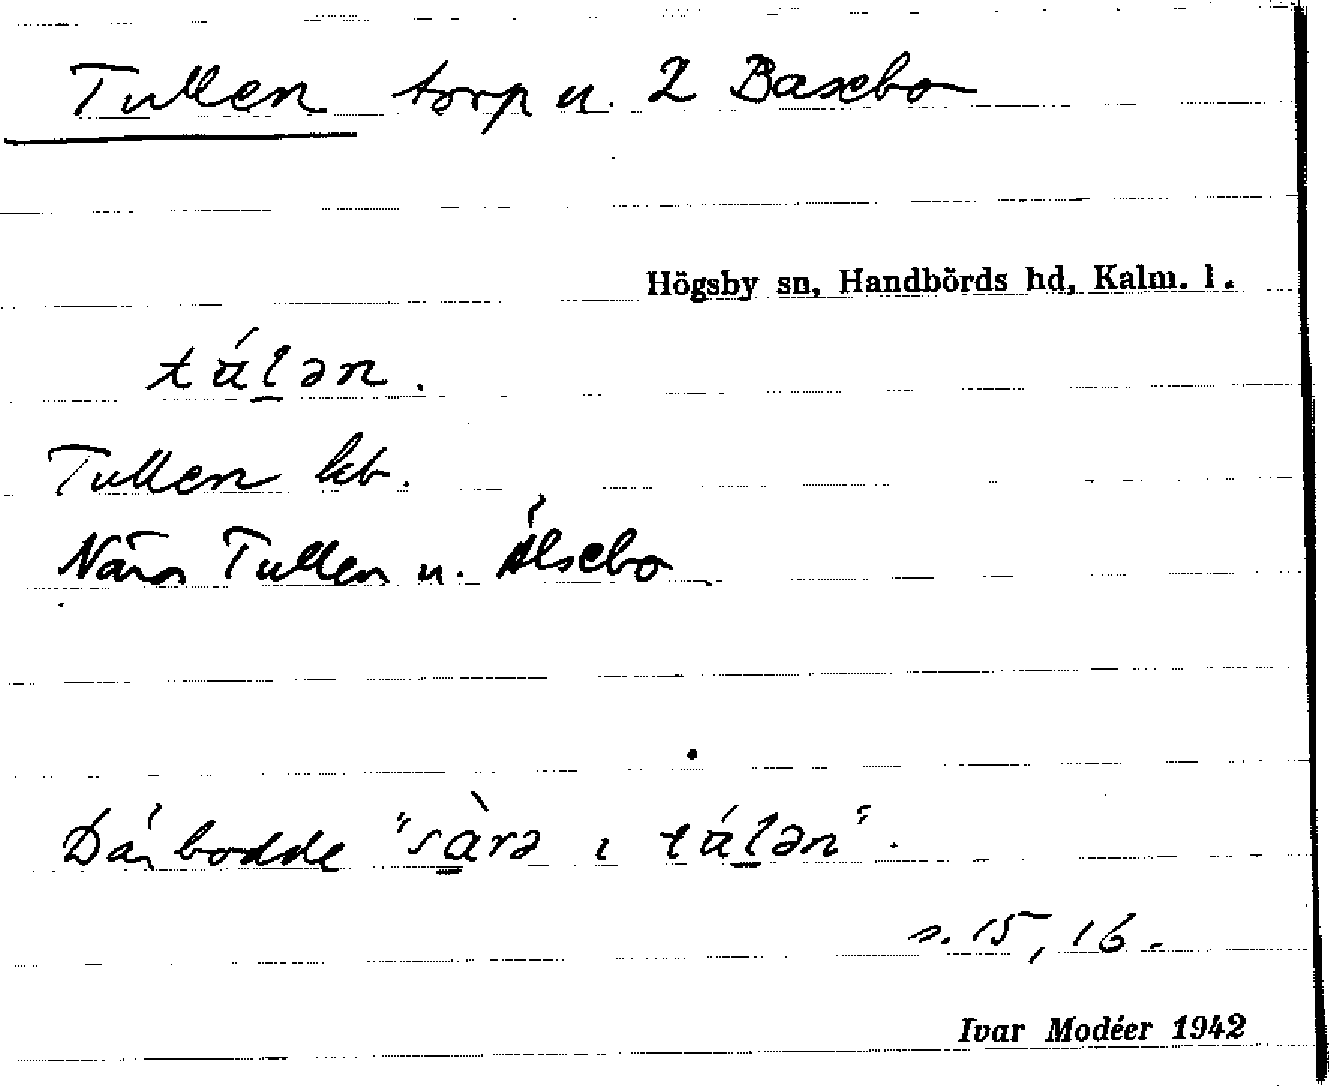 Tullen torp u. 2 Baxebo
Högsby sn, Handbörds hd, Kalm. l.
túl̲ən.
Tullen kb.
Nära Tullen u. Älsebo
Där bodde "sà̲rə ı túl̲ən".
s. 15, 16.
Ivar Modéer 1942